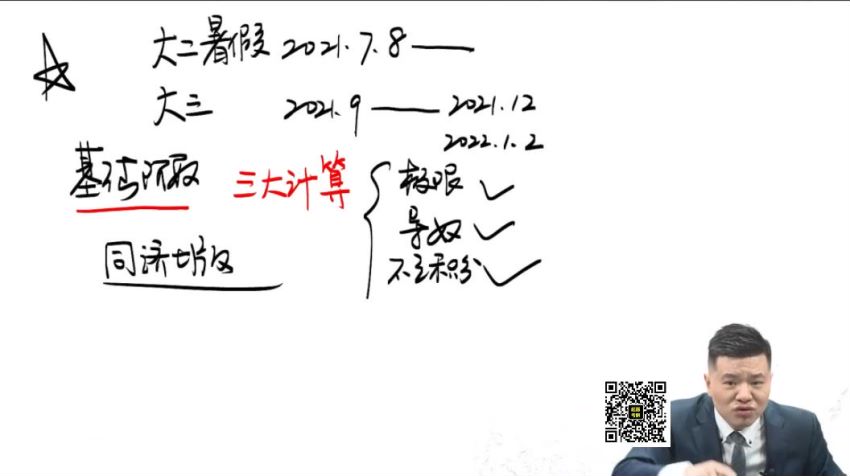 大二暑假 2021.7.8——
大三 2021.9——2021.12
2022.1.2
基础阶段 三大计算
极限 ✓
导数 ✓
不定积分 ✓
同济七版